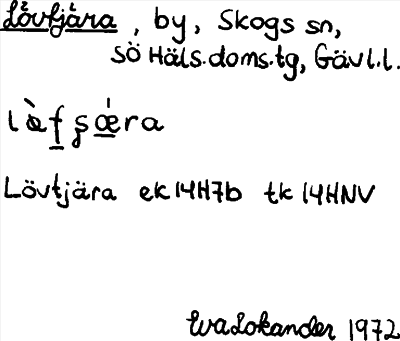 Lövtjära, by, Skogs sn,
SÖ Häls.doms.tg, Gävl.l.
lə̀fʂǽra
Lövtjära ek 14H7b tk 14HNV
Eva Lokander 1972